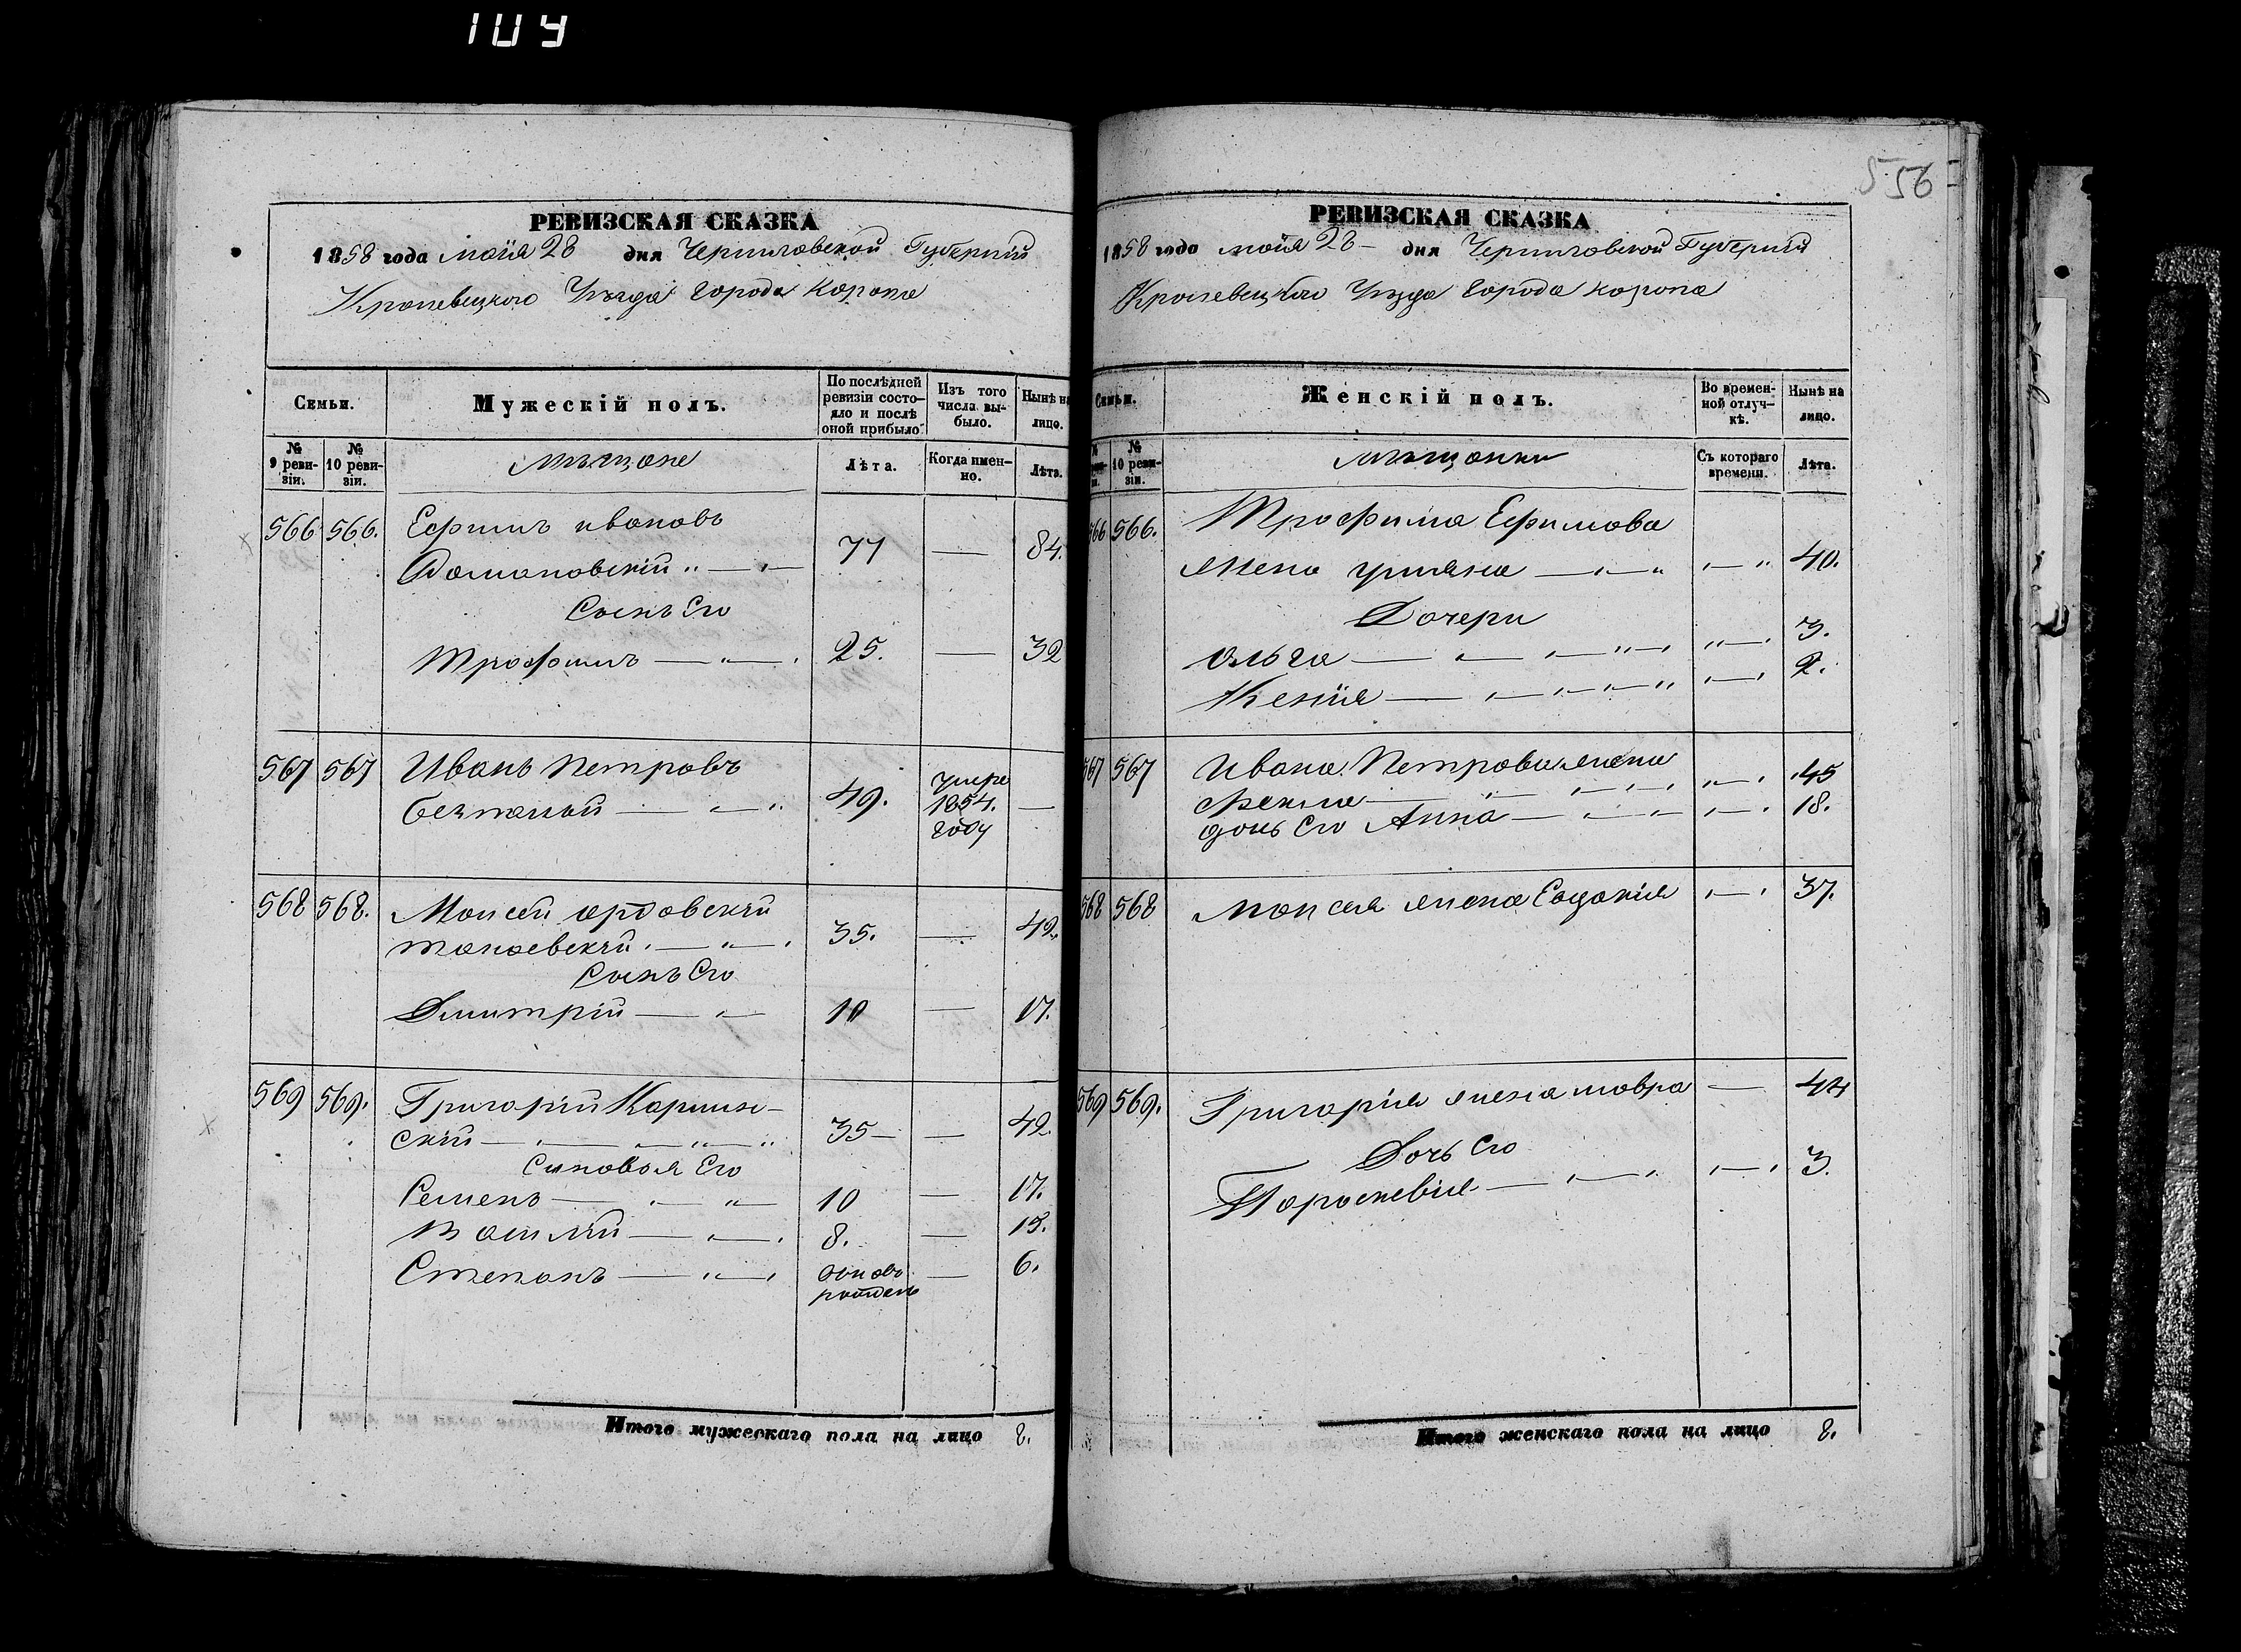 109
556
РЕВИЗСКАЯ СКАЗКА
1858 года маія 28 дня Черниговской Губерніи
Кролевецкого Уѣзда города Коропа
Семьи. Мужескій полъ. По послѣдней ревизіи состояло и послѣ оной прибыло Изъ того числа выбыло. Нынѣ на лицо.
№ 9 ревизіи. № 10 ревизіи. мѣщане Лѣта. Когда именно. Лѣта.
566 566. Ефимъ ивановъ
Домановскій 77 — 84.
Сынъ Его
Трофимъ 25. — 32
567 567 Иванъ Петровъ
49. умре 1854. году —
568 568. Моисей
35. — 42.
Сынъ Его
Димитрій 10 — 17.
569 569. Григорій Каринский 35 — 42.
Синовья Его
Семенъ 10 — 17.
Василій 8. — 15.
Степанъ вновь рожденъ — 6.
Итого мужескаго пола на лицо 8.
РЕВИЗСКАЯ СКАЗКА
1858 года маія 28 дня Черниговской Губерніи
Кролевецкого Уѣзда города Коропа
Семьи. Женскій полъ. Во временной отлучкѣ. Нынѣ на лицо.
№ 10 ревизіи. мѣщанки Съ котораго времени. Лѣта.
566 566. Трофима Ефимова
жена уліяна 40.
Дочери
Ольга 3.
Ксенія 2.
567 567 Ивана Петрова жена 45
Фекла
дочь Его Анна 18.
568 568 Моисея жена Евдокія 37.
569 569. Григорія жена мавра — 44
Дочь Его
Параскевія 3.
Итого женскаго пола на лицо 8.